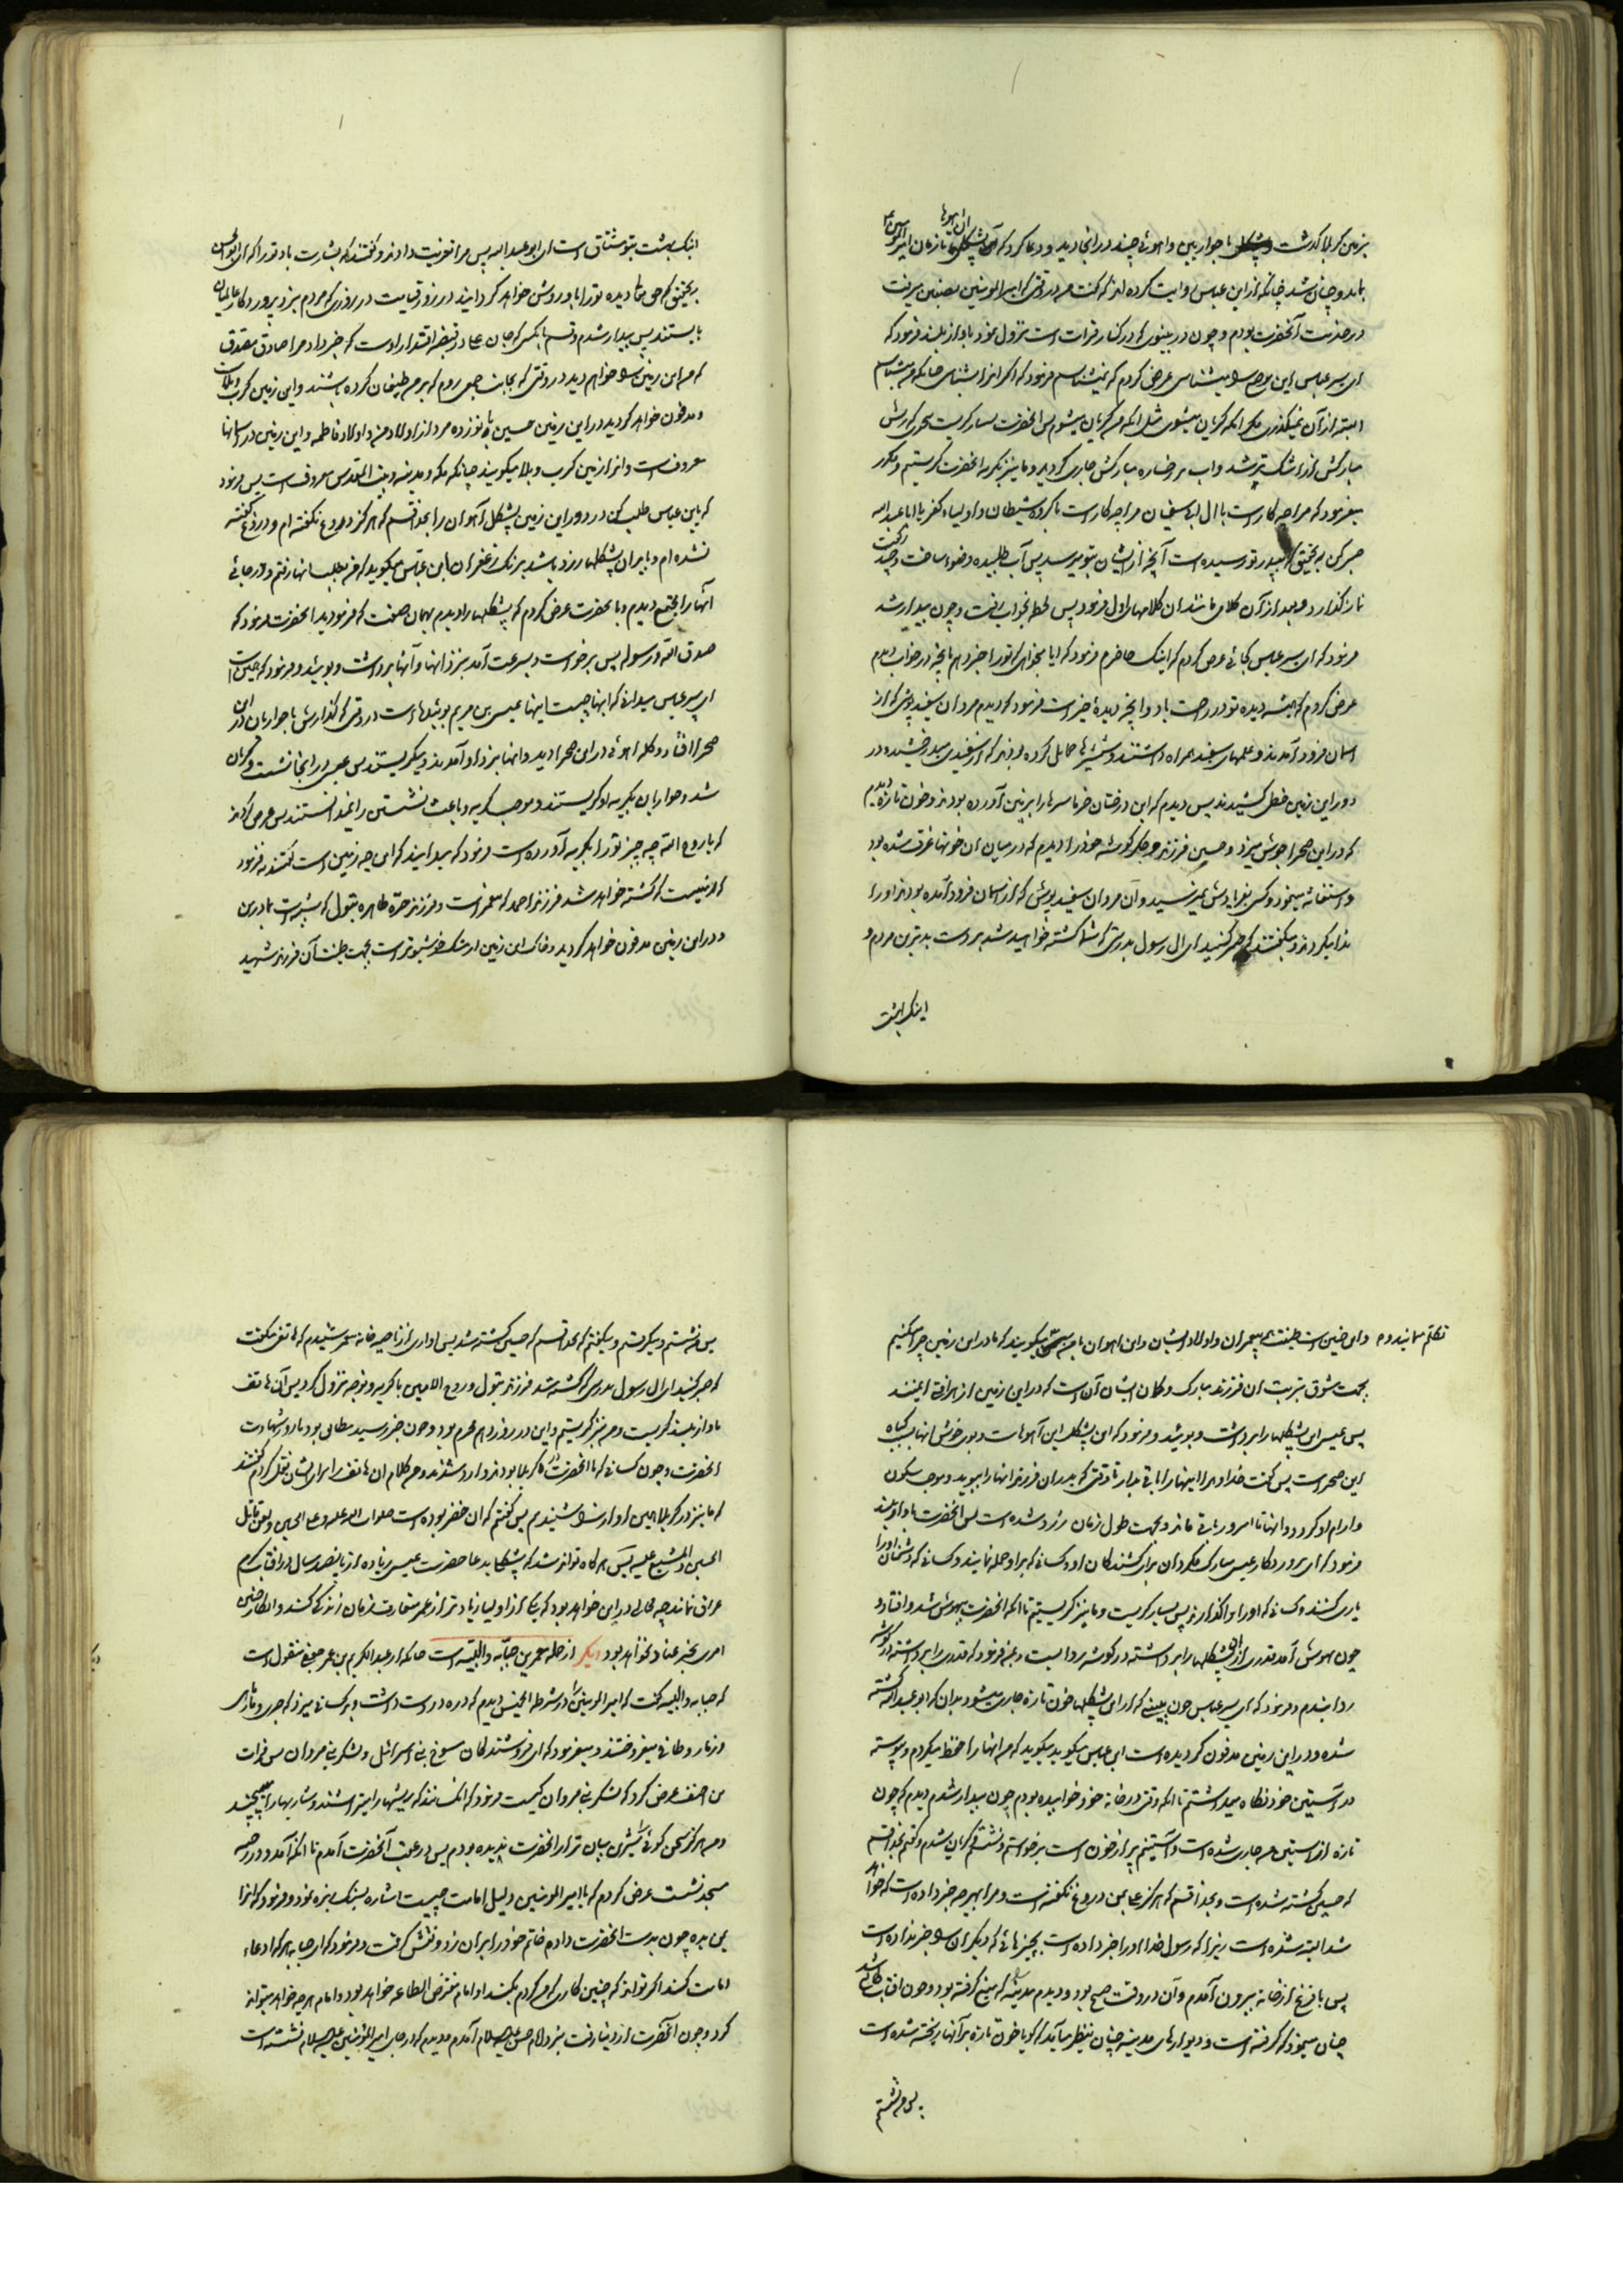 بزمین کربلا گذشت با حواریین و آهوئی چند در آنجا دید و دعا کرد که آن پشکلها تا زمان امیر المؤمنین ع
بماند و چنان شد چنانکه از ابن عباس روایت کرده اند که گفت من در وقتی که امیر المومنین بصفین میرفت
در خدمت آنحضرت بودم و چون در نینوی که در کنار فرات است نزول نمود باواز بلند فرمود که
ای پسر عباس این موضع را میشناسی عرض کردم که نمیشناسم فرمود که اگر آنرا بشناسی چنانکه من میشناسم
البته از آن نمیگذری مگر آنکه گریان میشوی مثل آنکه من گریان میشوم پس آنحضرت بسیار گریست بحدی که ریش
مبارکش از اشک تر شد و آب بر رخساره مبارکش جاری گردید و ما نیز بگریه آنحضرت گریستیم و مکرر
میفرمود که مرا چه کار است با آل ابی سفیان مرا چه کار است با گروه شیطان و اولیاء کفر یا ابا عبد الله
صبر کن که بتحقیق که بپدر تو رسیده است آنچه از ایشان بتو میرسد پس آب طلبیده وضوء ساخت و چند رکعت
نماز گذارد و بعد از آن کلامی مانند آن کلامهای اول فرمود پس لحظه بخواب رفت و چون بیدار شد
فرمود که ای پسر عباس کجائی عرض کردم که اینک حاضرم فرمود که آیا میخواهی که تو را خبر دهم بآنچه در خواب دیدم
عرض کردم که همیشه دیده تو در راحت باد و آنچه دیدهٔ خیر است فرمود که دیدم مردان سفید پوشی که از
اسمان فرود آمدند و علمهای سفید همراه داشتند و شمشیرها حمایل کرده بودند که از سفیدی میدرخشیدند و در
دور این زمین خطی کشیدند پس دیدم که این درختان خرما سرها را بر زمین آورده بودند و خون تازه دیدم
که در این صحرا جوش میزد و حسین فرزند و جگر گوشه خود را دیدم که در میان آن خونها غرق شده بود
و استغاثه مینمود و کسی بفریادش نمیرسید و آن مردان سفید پوش که از آسمان فرود آمده بودند او را
ندا میکردند و میگفتند که صبر کنید ای آل رسول بدرستی که شما کشته خواهید شد بر دست بدترین مردم و
اینک بهشت
اینک بهشت بتو مشتاق است ای ابو عبد الله پس مرا تعزیت دادند و گفتند که بشارت باد تو را که ای ابو الحسن
بتحقیق که حق تعالی دیده تو را باو روشن خواهد گردانید در روز قیامت در روزی که مردم بنزد پروردگار عالمیان
بایستند پس بیدار شدم و قسم بآنکسی که جان علی در قبضه اقتدار اوست که خبر داد مرا صادق مصدق
که من این زمین را خواهم دید در وقتی که بجانب جمعی روم که بر من طغیان کرده باشند و این زمین کرب و بلاست
و مدفون خواهد گردید در این زمین حسین با نوزده مرد از اولاد من و اولاد فاطمه و این زمین در آسمانها
معروف است و آنرا زمین کرب و بلا میگویند چنانکه مکه و مدینه و بیت المقدس معروف است پس فرمود
که یابن عباس طلب کن در دور این زمین پشکل آهوان را بخدا قسم که هرگز دروغ نگفته ام و دروغ گفته
نشده ام و بیاب آن پشکلها زرد باشد برنک زعفران ابن عباس میگوید که من بطلب آنها رفتم و در جائی
آنها را مجتمع دیدم و بآنحضرت عرض کردم که پشکلها را دیدم بهمان صفت که فرمودید آنحضرت فرمود که
صدق الله و رسوله پس برخواست و بسرعت آمد بنزد آنها و آنها برداشت و بوئید و فرمود که همین است
ای پسر عباس میدانی که اینها چیست اینها عیسی بن مریم بوئیده است در وقتی که گذارش با حواریان در این
صحرا افتاد و گله آهوئی در این صحرا دید و آنها بنزد او آمدند و میگریستند پس عیسی در آنجا نشست و گریان
شد و حواریان بگریه او گریستند و موجب گریه و باعث نشستن را نمیدانستند پس عرض کردند
که یا روح الله چه چیز تو را بگریه آورده است فرمود که میدانید که این چه زمین است گفتند نه فرمود
که زمینیست که کشته خواهد شد فرزند احمد که پیغمبر است و فرزند حره طاهره بتول که شبیه است بمادر من
و در این زمین مدفون خواهد گردید و خاک این زمین از مشک خوشبوتر است بجهت طینت آن فرزند شهید
تکلم مینمایند و این چنین است طینتهای پیغمبران و اولاد ایشان و این آهوان با من میگویند که ما در این زمین چرا میکنیم
بجهت شوق بتربت آن فرزند مبارک و گمان ایشان آن است که در این زمین از هر آفتی ایمنند
پس عیسی این پشکلها را برداشت و بوئید و فرمود که این پشکل این آهوهاست و بوی خوش آنها بسبب گیاه
این صحراست پس گفت خداوندا اینها را باقی بدار تا وقتی که پدر آن فرزند آنها را ببوید و موجب سکون
و آرام او گردد و آنها تا امروز باقی ماند و بجهت طول زمان زرد شده است پس آنحضرت باواز بلند
فرمود که ای پروردگار عیسی مبارک مگردان برای کشندگان او و کسانی که بر او حمله نمایند و کسانی که دشمنان او را
یاری کنند و کسانی که او را وا گذارند پس بسیار گریست و ما نیز گریستیم تا آنکه آنحضرت بیهوش شد و افتاد و
چون بهوش آمد قدری از این پشکلها را برداشته در گوشه ردا بست و بمن فرمود که قدری را برداشته در گوشه
ردا بندم و فرمود که ای پسر عباس چون ببینی که از این پشکلها خون تازه جاری میشود بدان که ابو عبد الله کشته
شده و در این زمین مدفون گردیده است ابن عباس میگوید که من آنها را حفظ میکردم و پیوسته
در آستین خود نگاه میداشتم تا آنکه وقتی در خانه خود خوابیده بودم چون بیدار شدم دیدم که خون
تازه از آستین من جاری شده است و آستینم پر از خون است برخواستم و نشستم گریان شدم و گفتم بخدا قسم
که حسین کشته شده است و بخدا قسم که هرگز علی بمن دروغ نگفته است و مرا بهر چه خبر داده است که خواهد
شد البته شده است زیرا که رسول خدا او را خبر داده است بچیزهائی که دیگران را خبر نداده است
پس با فزع از خانه بیرون آمدم و آن در وقت صبح بود و دیدم مدینه را که میغ گرفته بود و چون آفتاب طالع شد
چنان مینمود که گرفته است و دیوارهای مدینه چنان بنظر میآمد که گویا خون تازه بر آنها ریخته شده است
پس نشستم
پس نشستم و میگریستم و میگفتم که بخدا قسم که حسین کشته شد پس آوازی از ناحیه خانه شنیدم که هاتفی میگفت
که صبر کنید ای آل رسول بدرستی که کشته شد فرزند بتول و روح الامین با گریه و نوحه نزول کرد پس آن هاتف
باواز بلند گریست و من نیز گریستیم و این در روز دهم محرم بود و چون خبر رسید مطابق بود با روز شهادت
آنحضرت و چون کسانی که با آنحضرت در کربلا بودند وارد شدند و من کلام آن هاتف را برای ایشان نقل کردم گفتند
که ما نیز در کربلا همین آواز را شنیدیم پس گفتم که آن خضر بوده است صلوات الله علیه و علی الحسین و لعن قاتل
الحسین و المشیع علیه پس هرگاه تواند شد که پشکلها بدعا حضرت عیسی زیاده از پانصد سال در آفتاب گرم
عراق بماند چه محالی در این خواهد بود که یکی از اولیا زیادتر از عمر متعارف زمان زندگی کند و انکار چنین
امری بجز عناد نخواهد بود دیگر از جمله معمرین حبابه والبیه است چنانکه از عبد الکریم بن عمر جعفی منقول است
که حبابه والبیه گفت که امیر المومنین را در شرطة الخمیس دیدم که دره در دست داشت و بر کسانی میزد که جری و مارماهی
و زمار و طافی میفروختند و میفرمود که ای فروشندگان مسوخ بنی اسرائیل و لشکر بنی مروان پس فرات
بن احنف عرض کرد که لشکر بنی مروان کیست فرمود که آنکسانند که ریشها را میتراشند و شاربها را میپیچند
و من هرگز سخن گوئی شیرین بیان تر از آنحضرت ندیده بودم پس در عقب آنحضرت آمدم تا آنکه آمد و در رحبه
مسجد نشست عرض کردم که یا امیر المومنین دلیل امامت چیست اشاره بسنک ریزه نمود و فرمود که آنرا
بمن بده چون بدست آنحضرت دادم خاتم خود را بر آن زد و نقش گرفت و فرمود که ای حبابه هر که ادعاء
امامت کند اگر تواند که چنین کاری که من کردم بکند او امام مفترض الطاعه خواهد بود و امام هر چه خواهد میتواند
کرد و چون آنحضرت از دنیا رفت بنزد امام حسن علیه السلام آمدم و دیدم که در جای امیر المؤمنین علیه السلام نشسته است